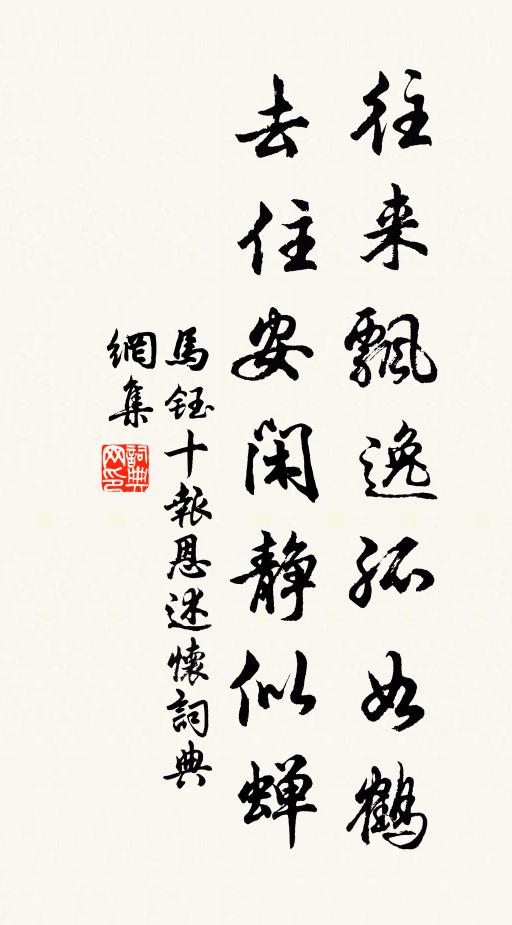 往来飄逸孤如鶴
去住安闲静似蝉
馬鈺十報恩述懷詞典
網集
詞典
网印